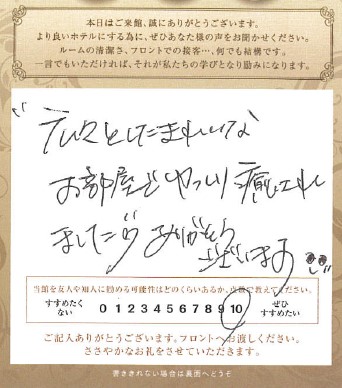 本日はご来館、誠にありがとうございます。
より良いホテルにする為に、ぜひあなた様の声をお聞かせください。
ルームの清潔さ、フロントでの接客…、何でも結構です。
一言でもいただければ、それが私たちの学びとなり励みになります。
広々としたきれいな
お部屋でゆっくり癒され
ました♡ ありがとう
ございます
当館を友人や知人に勧める可能性はどのくらいあるか、点数で教えてください。
すすめたくない 0 1 2 3 4 5 6 7 8 9 10 ぜひすすめたい
ご記入ありがとうございます。フロントへお渡しください。
ささやかなお礼をさせていただきます。
書ききれない場合は裏面へどうぞ